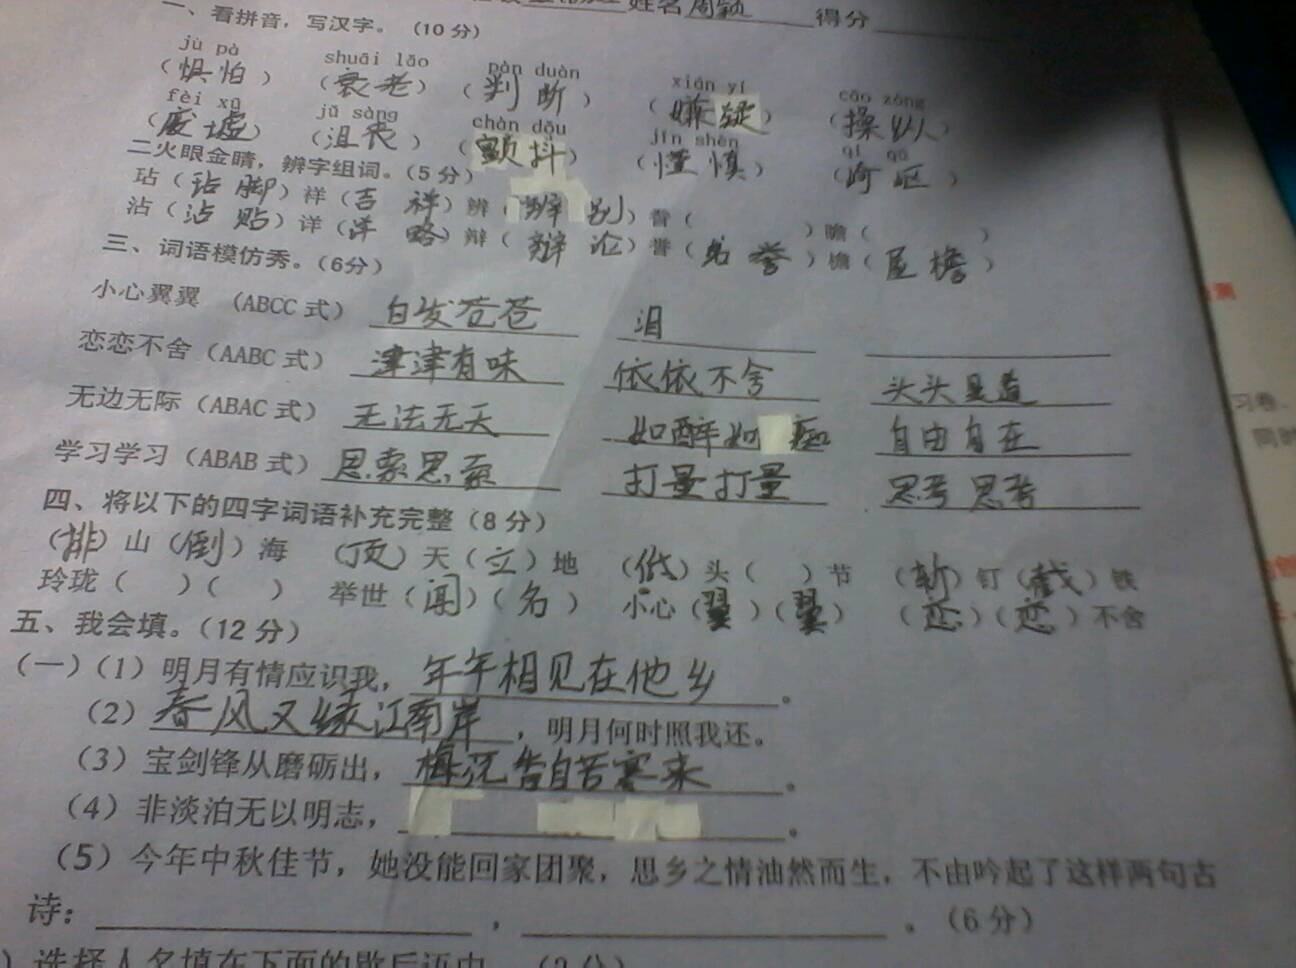 姓名周颖 得分
一、看拼音，写汉字。（10分）
jù pà shuāi lǎo pàn duàn xián yí cāo zòng
（惧怕）（衰老）（判断）（嫌疑）（操纵）
fèi xū jǔ sàng chàn dǒu jǐn shèn qí qū
（废墟）（沮丧）（颤抖）（谨慎）（崎岖）
二火眼金睛，辨字组词。（5分）
玷（玷脚）祥（吉祥）辨（辨别）（ ）瞻（ ）
沾（沾贴）详（详略）辩（辩论）誉（名誉）檐（屋檐）
三、词语模仿秀。（6分）
小心翼翼 （ABCC式）白发苍苍 泪
恋恋不舍（AABC式）津津有味 依依不舍 头头是道
无边无际（ABAC式）无法无天 如醉如痴 自由自在
学习学习（ABAB式）思索思索 打量打量 思考思考
四、将以下的四字词语补充完整（8分）
（排）山（倒）海 （顶）天（立）地 （低）头（ ）节 （斩）钉（截）铁
玲珑（ ）（ ） 举世（闻）（名） 小心（翼）（翼） （恋）（恋）不舍
五、我会填。（12分）
（一）（1）明月有情应识我，年年相见在他乡。
（2）春风又绿江南岸，明月何时照我还。
（3）宝剑锋从磨砺出，梅花香自苦寒来。
（4）非淡泊无以明志，。
（5）今年中秋佳节，她没能回家团聚，思乡之情油然而生，不由吟起了这样两句古
诗： ， 。（6分）
选择人名填在下面的歇后语中。（2分）
习卷、
同时